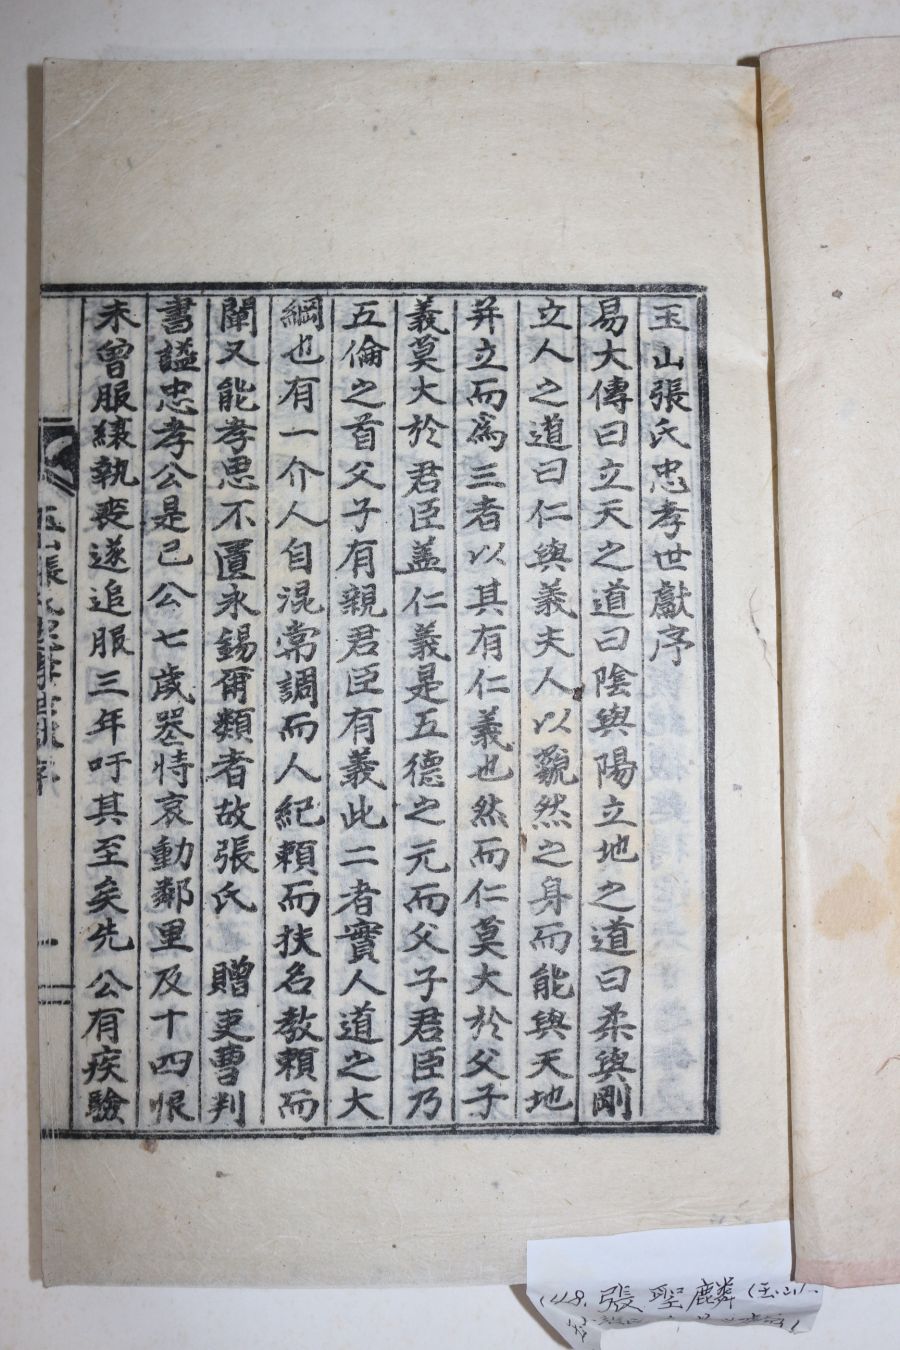 玉山張氏忠孝世獻序
易大傳曰立天之道曰陰與陽立地之道曰柔與剛
立人之道曰仁與義夫人以藐然之身而能與天地
并立而爲三者以其有仁義也然而仁莫大於父子
義莫大於君臣盖仁義是五德之元而父子君臣乃
五倫之首父子有親君臣有義此二者實人道之大
綱也有一介人自混常調而人紀賴而扶名教賴而
闡又能孝思不匱永錫爾類者故張氏 贈吏曹判
書謚忠孝公是已公七歲罢恃哀動鄰里及十四恨
未曾服縗執喪遂追服三年吁其至矣先公有疾驗
玉山張氏忠孝世獻序
一
張聖麟(玉山)